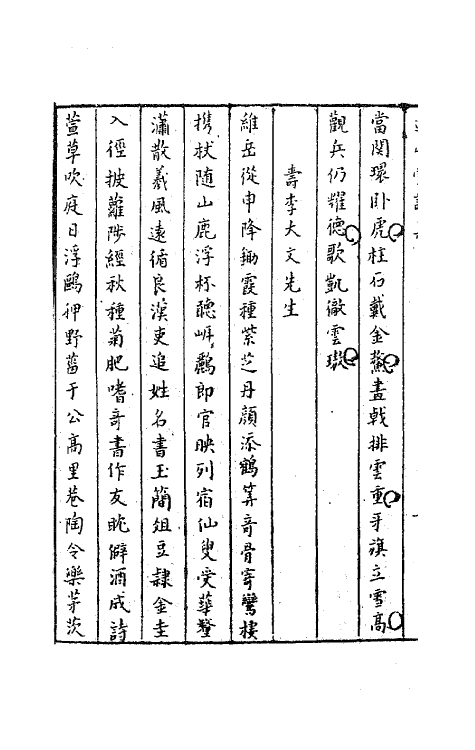 當関環卧虎柱石戴金鰲畫戟排雲重牙旗立雪高
觀兵仍耀德歌凱徹雲璈
壽李大文先生
維岳從申降鋤霞種紫芝丹顏添鶴筭奇骨寄鸞棲
携杖随山鹿浮杯聽峽鸝即官映列宿仙叟受華釐
瀟散羲風遠循良漢吏追姓名書玉簡俎豆隷金圭
入徑披蘿陟經秋種菊肥嗜奇書作友眈僻酒成詩
萱草吹庭日浮鷗狎野蓄于公高里巷陶令樂茅茨